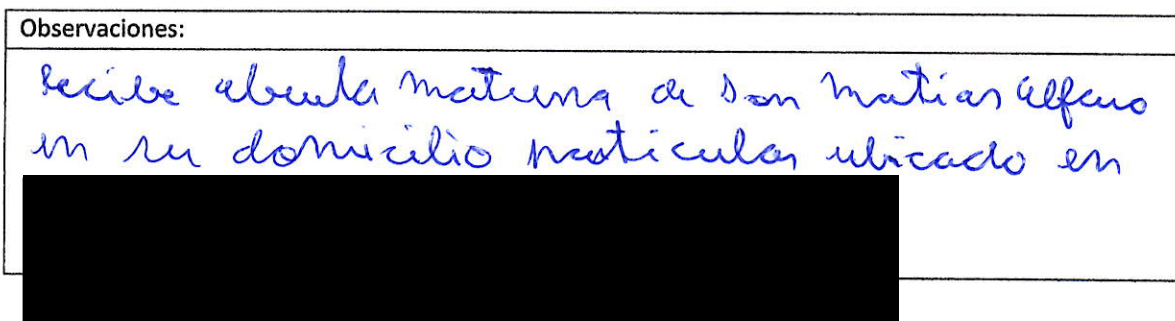 Observaciones:
Recibe abuela materna de Don Matias Alfaro
en su domicilio particular ubicado en